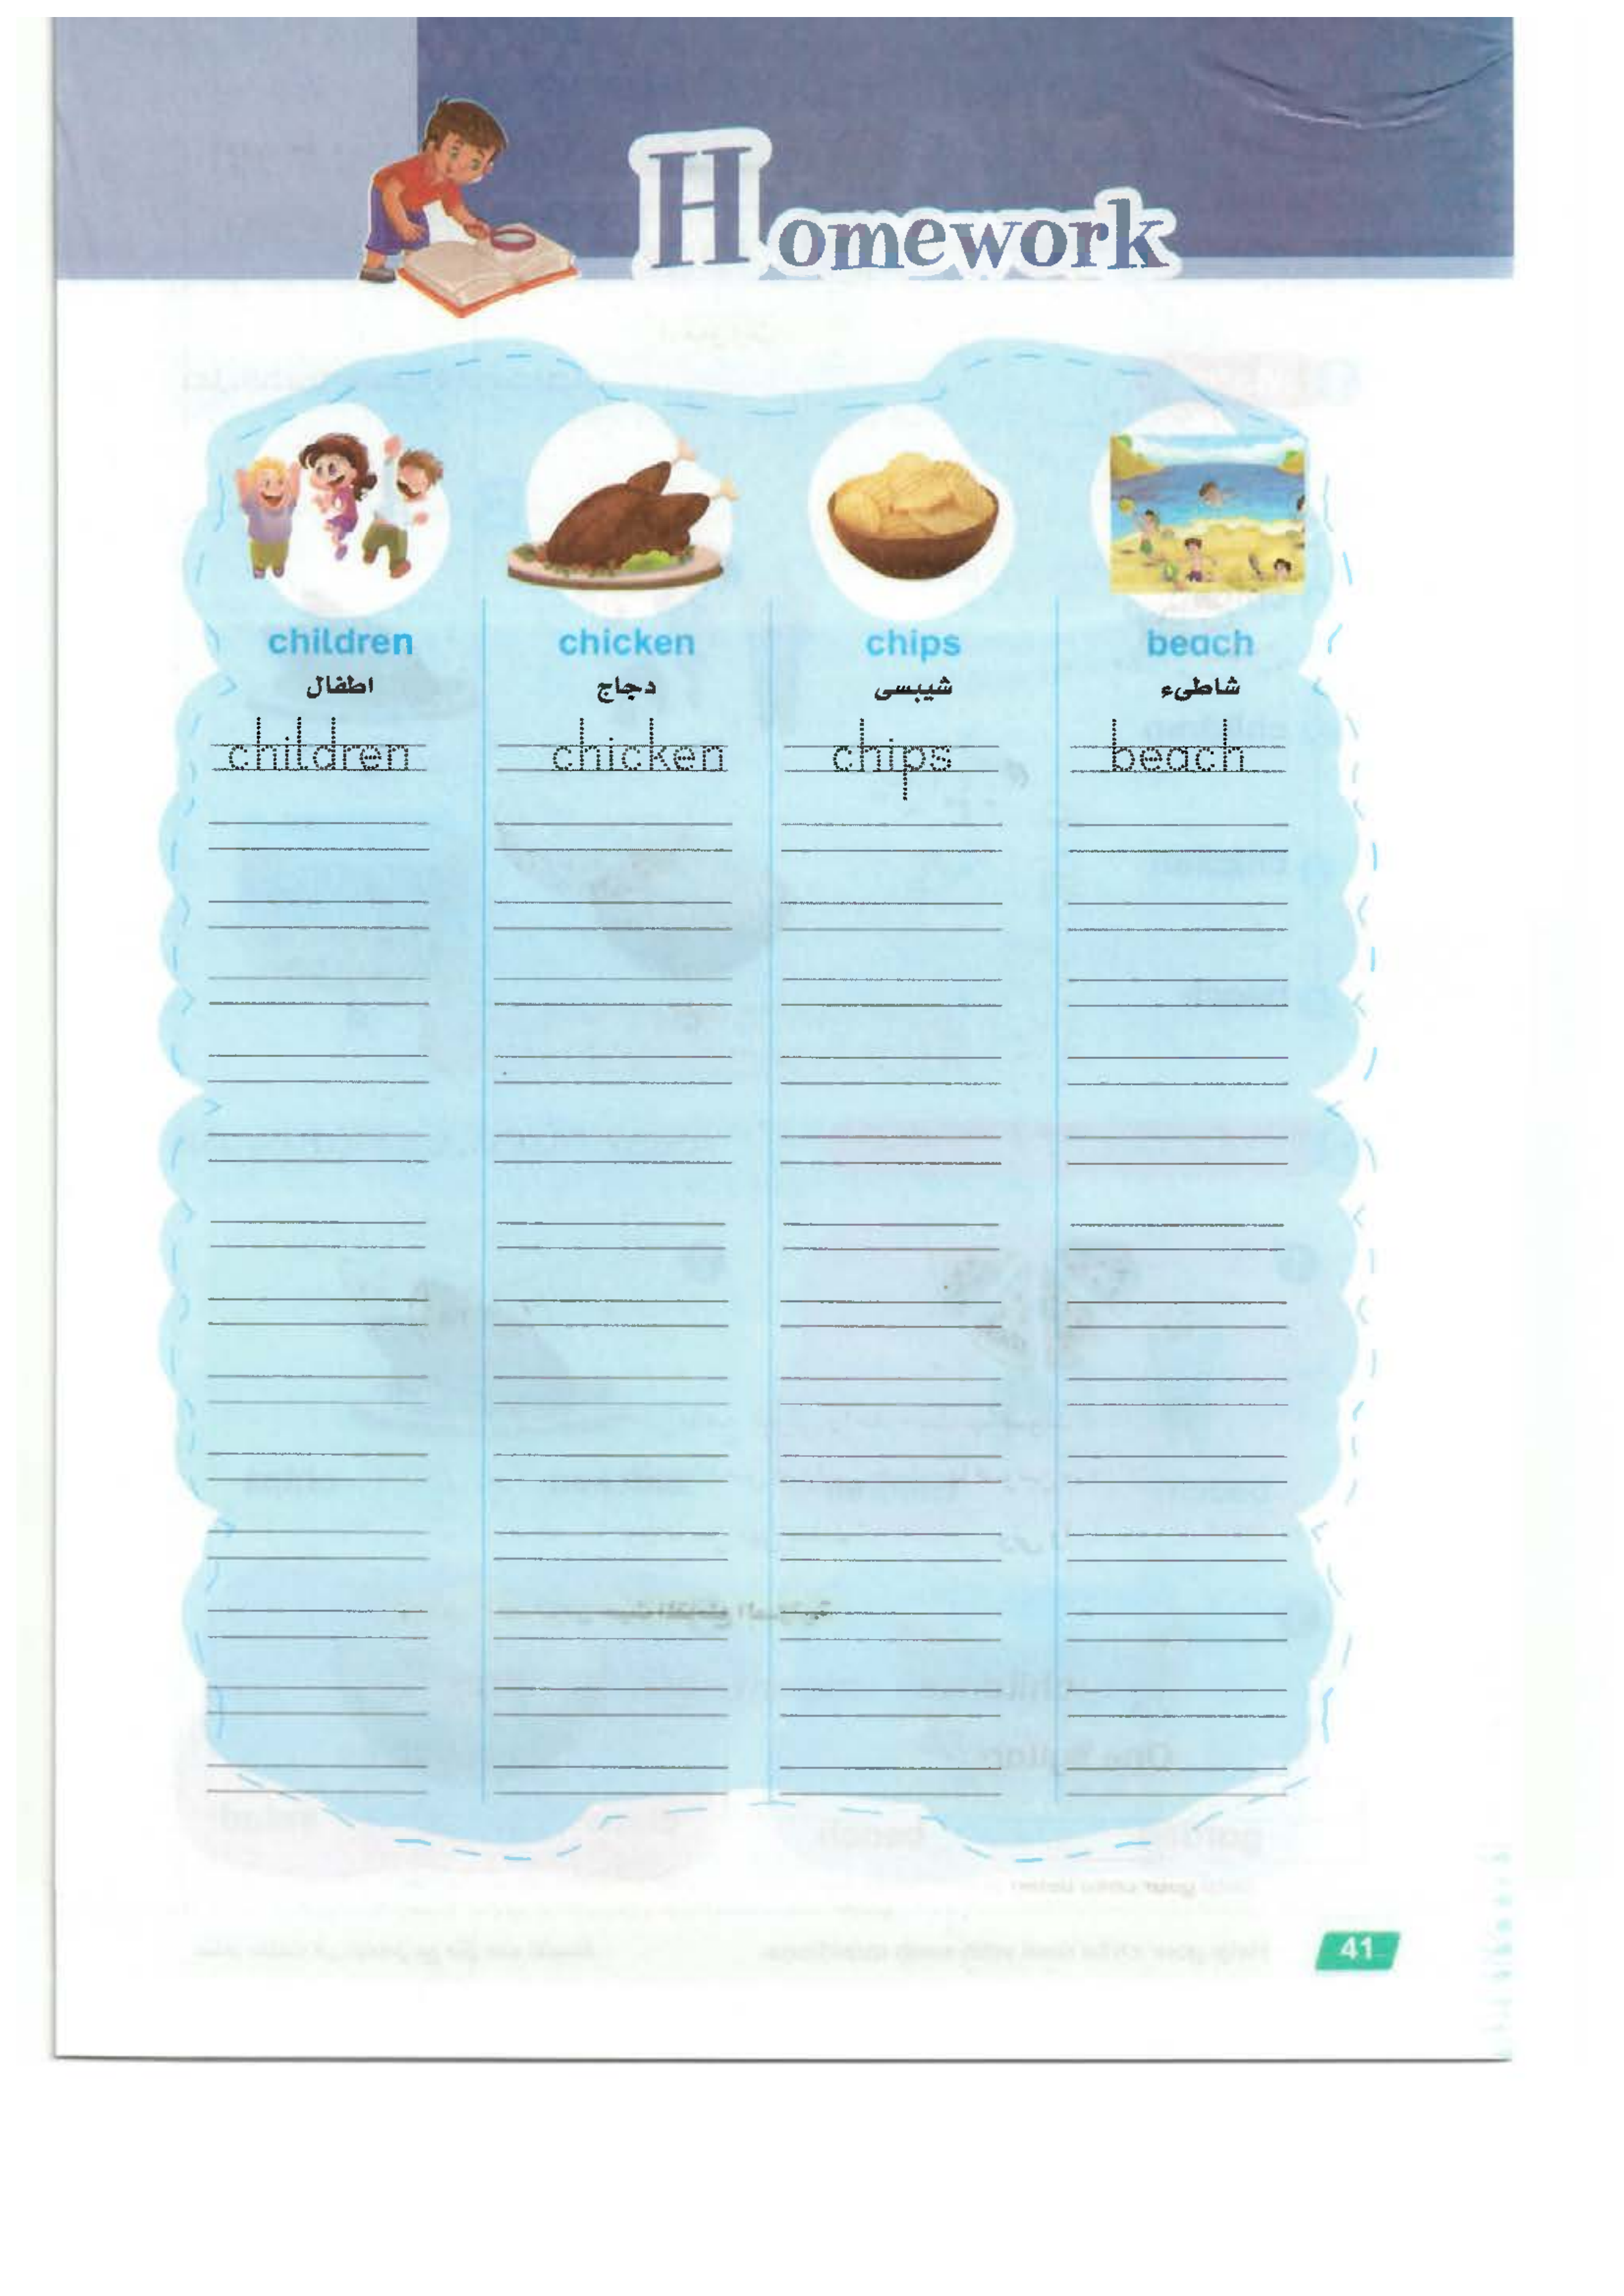 Homework
children chicken chips beach
اطفال دجاج شيبسى شاطىء
children chicken chips beach
41